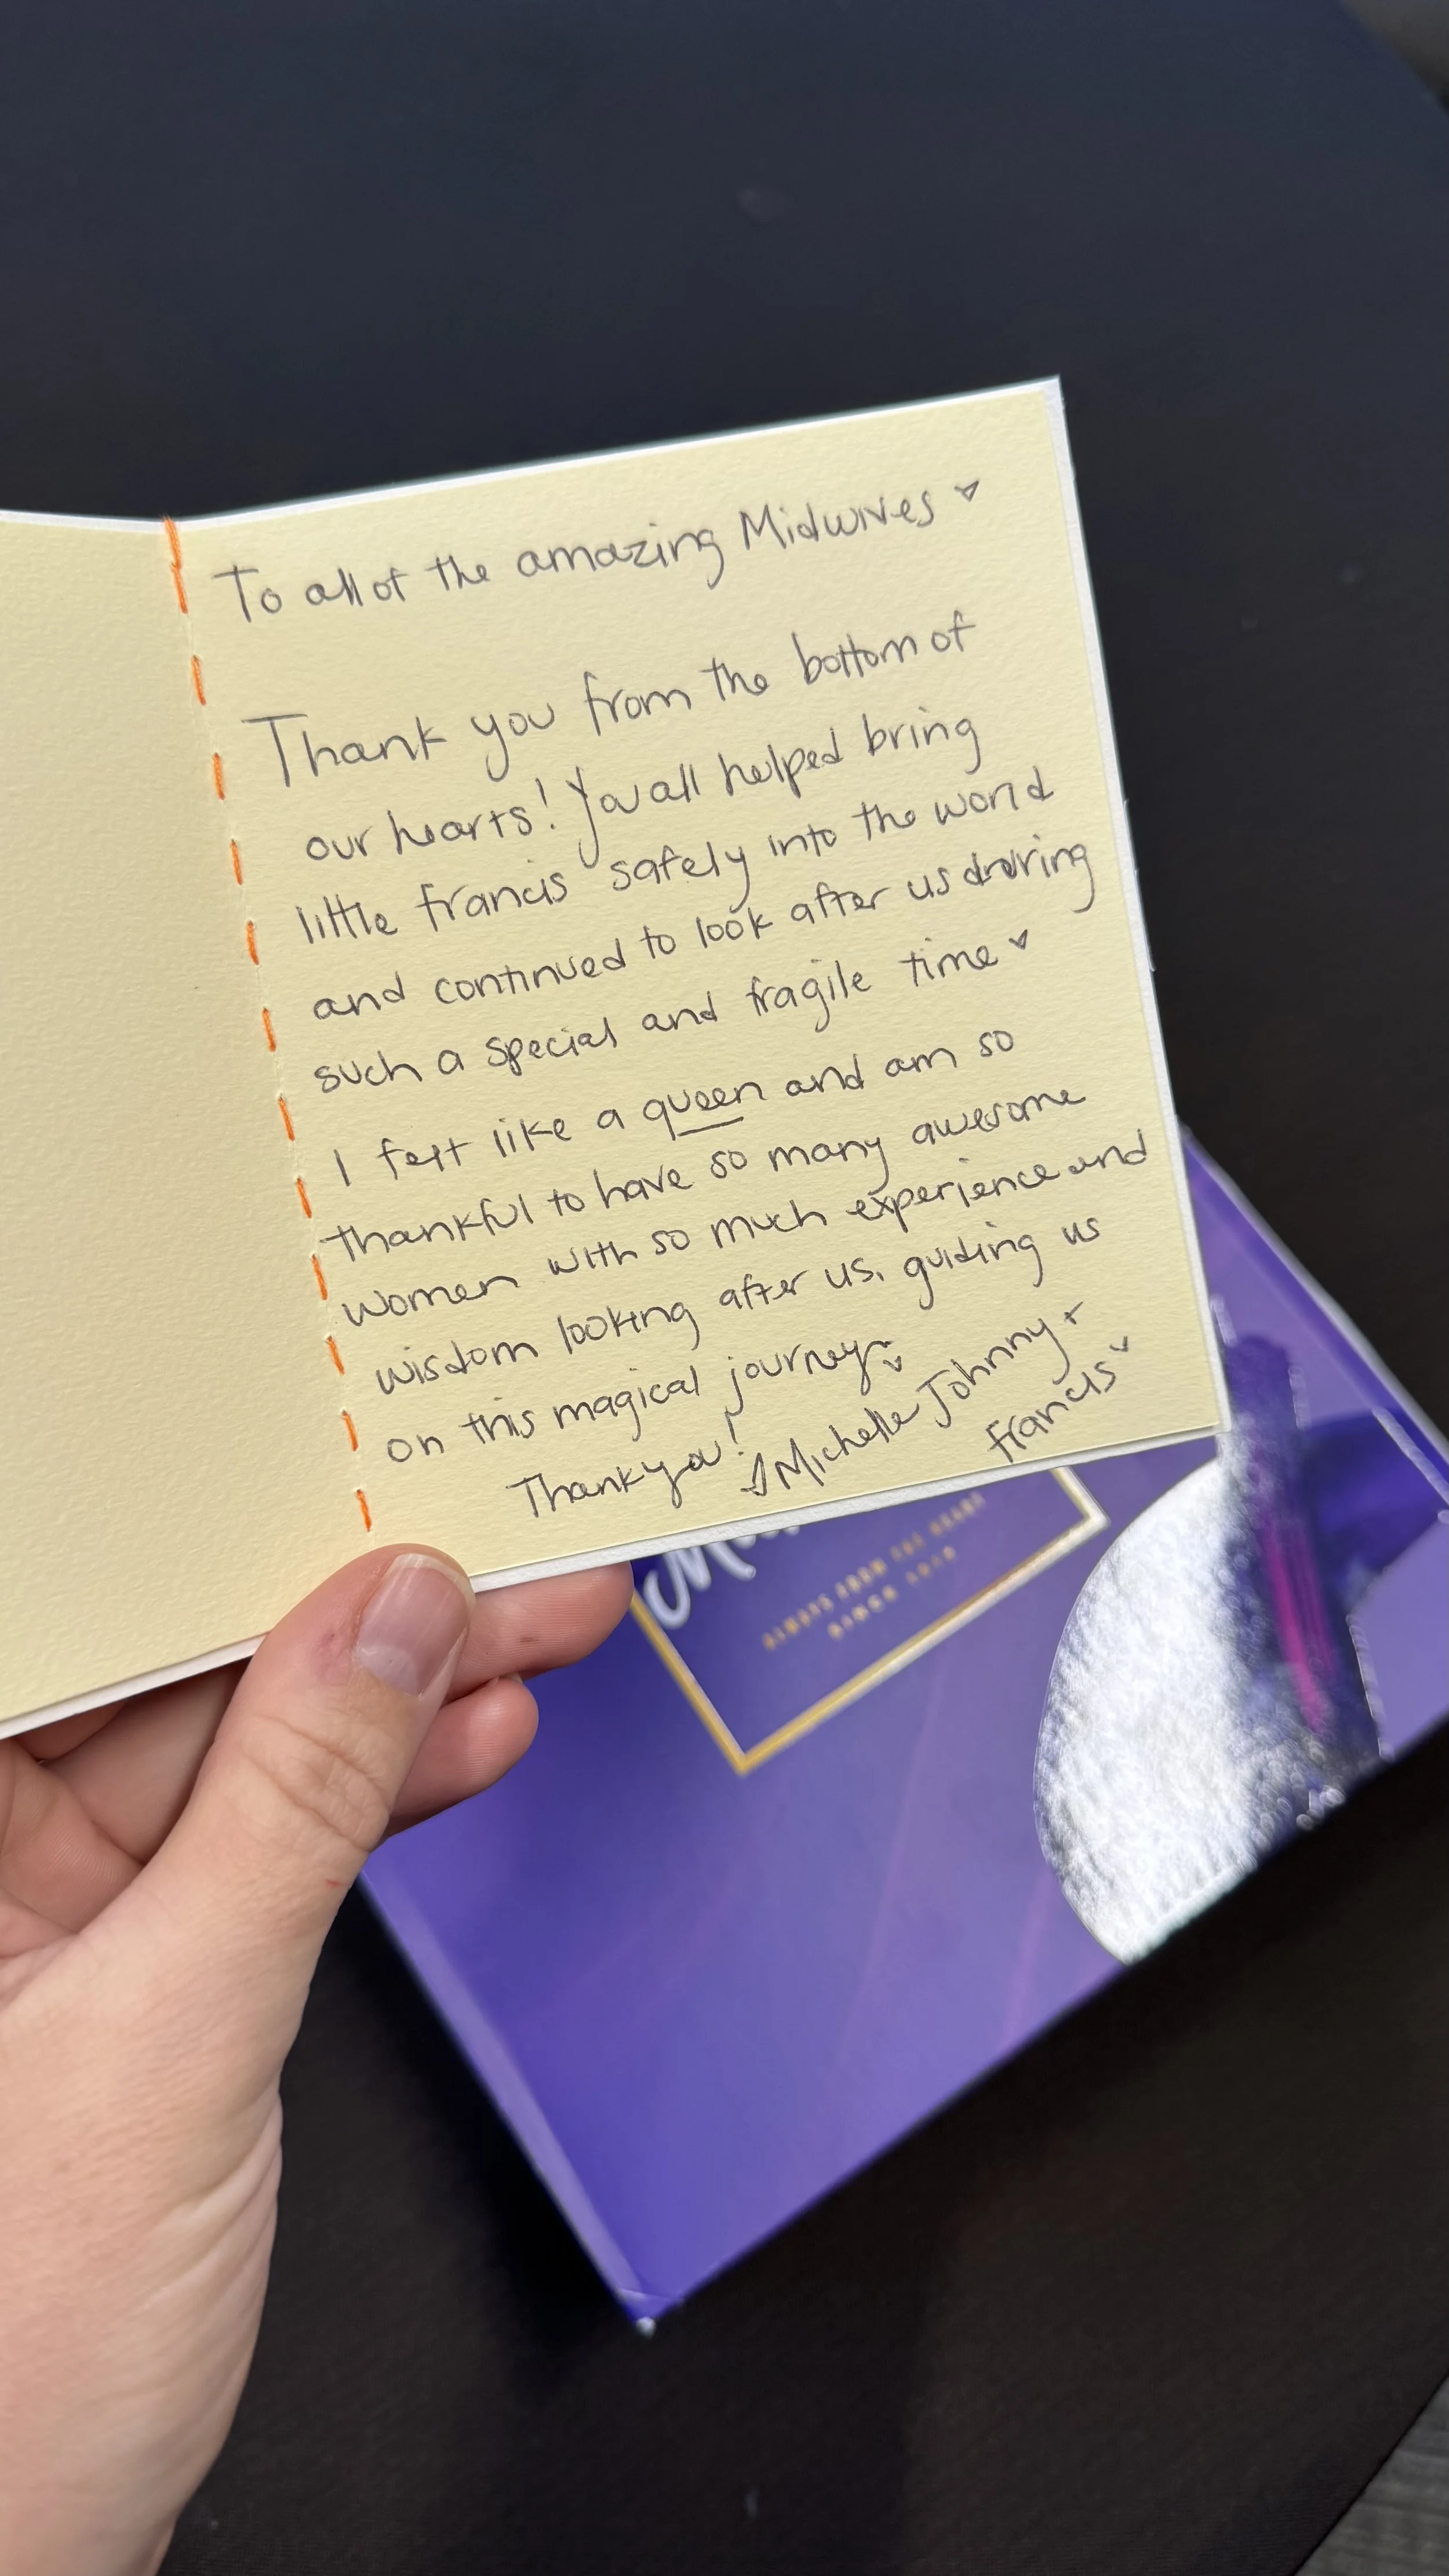 To all of the amazing Midwives ♥
Thank you from the bottom of
our hearts! You all helped bring
little francis safely into the world
and continued to look after us druring
such a special and fragile time ♥
I felt like a queen and am so
thankful to have so many awesome
women with so much experience and
wisdom looking after us, guiding us
on this magical journey ♥
Thank you!
♥ Michelle Johnny +
francis ♥
ALWAYS FROM THE HEART